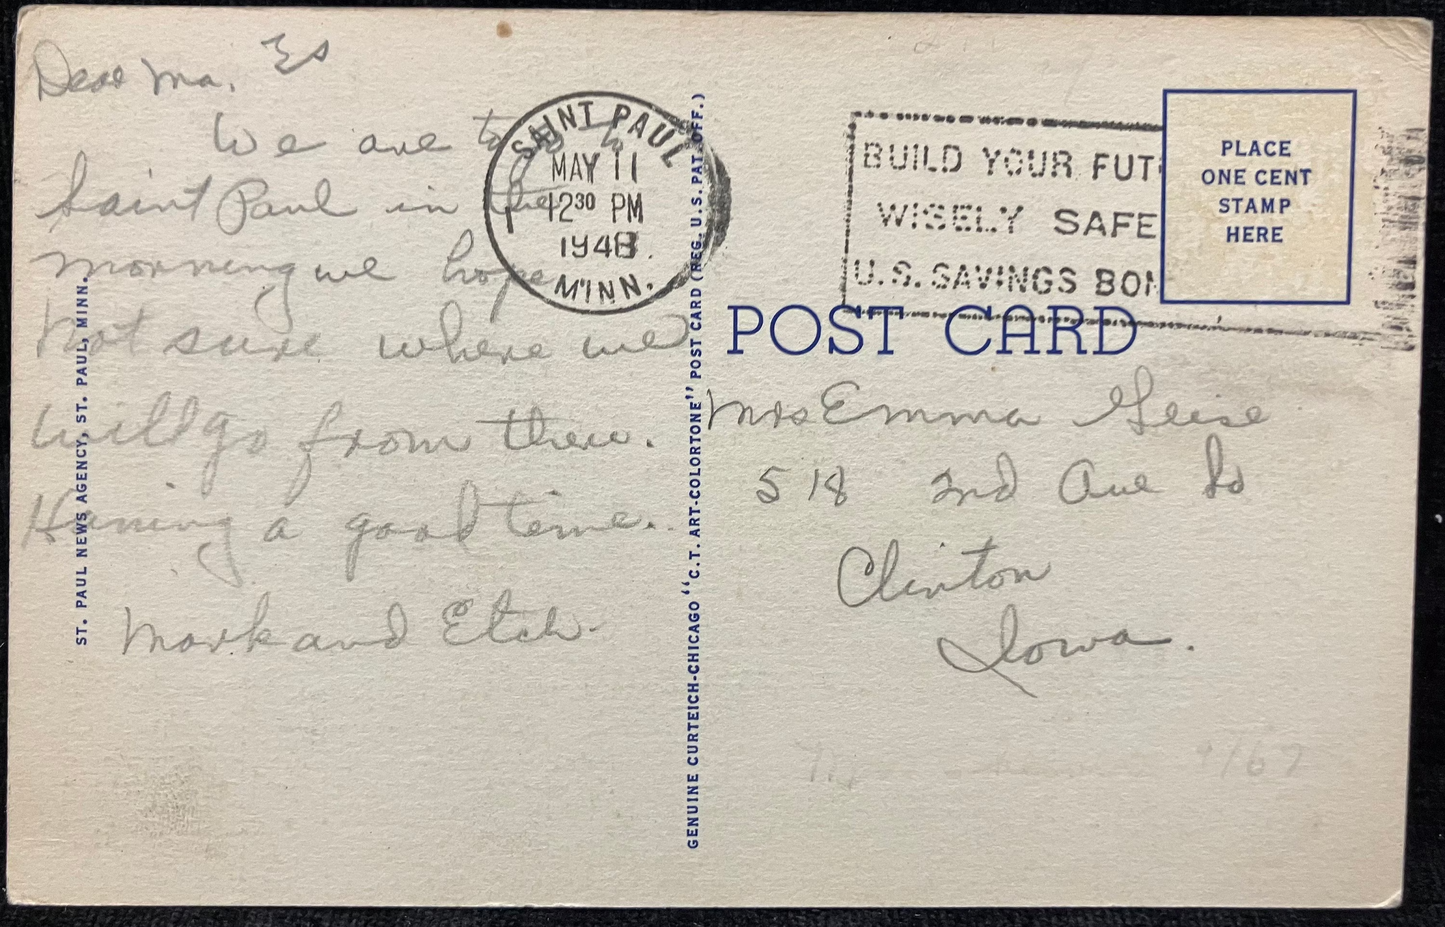 Dear Ma.
We are to go to
Saint Paul in the
morning we hope
Not sure where we
will go from there.
Having a good time.
Mark and
ST. PAUL NEWS AGENCY, ST. PAUL, MINN.
SAINT PAUL
MAY 11
12 30 PM
1948
MINN.
GENUINE CURTEICH-CHICAGO "C.T. ART-COLORTONE" POST CARD (REG. U.S. PAT. OFF.)
BUILD YOUR FUT
WISELY SAFE
U.S. SAVINGS BON
PLACE
ONE CENT
STAMP
HERE
POST CARD
Mrs Emma Geise
518 2nd Ave So
Clinton
Iowa.
9/67